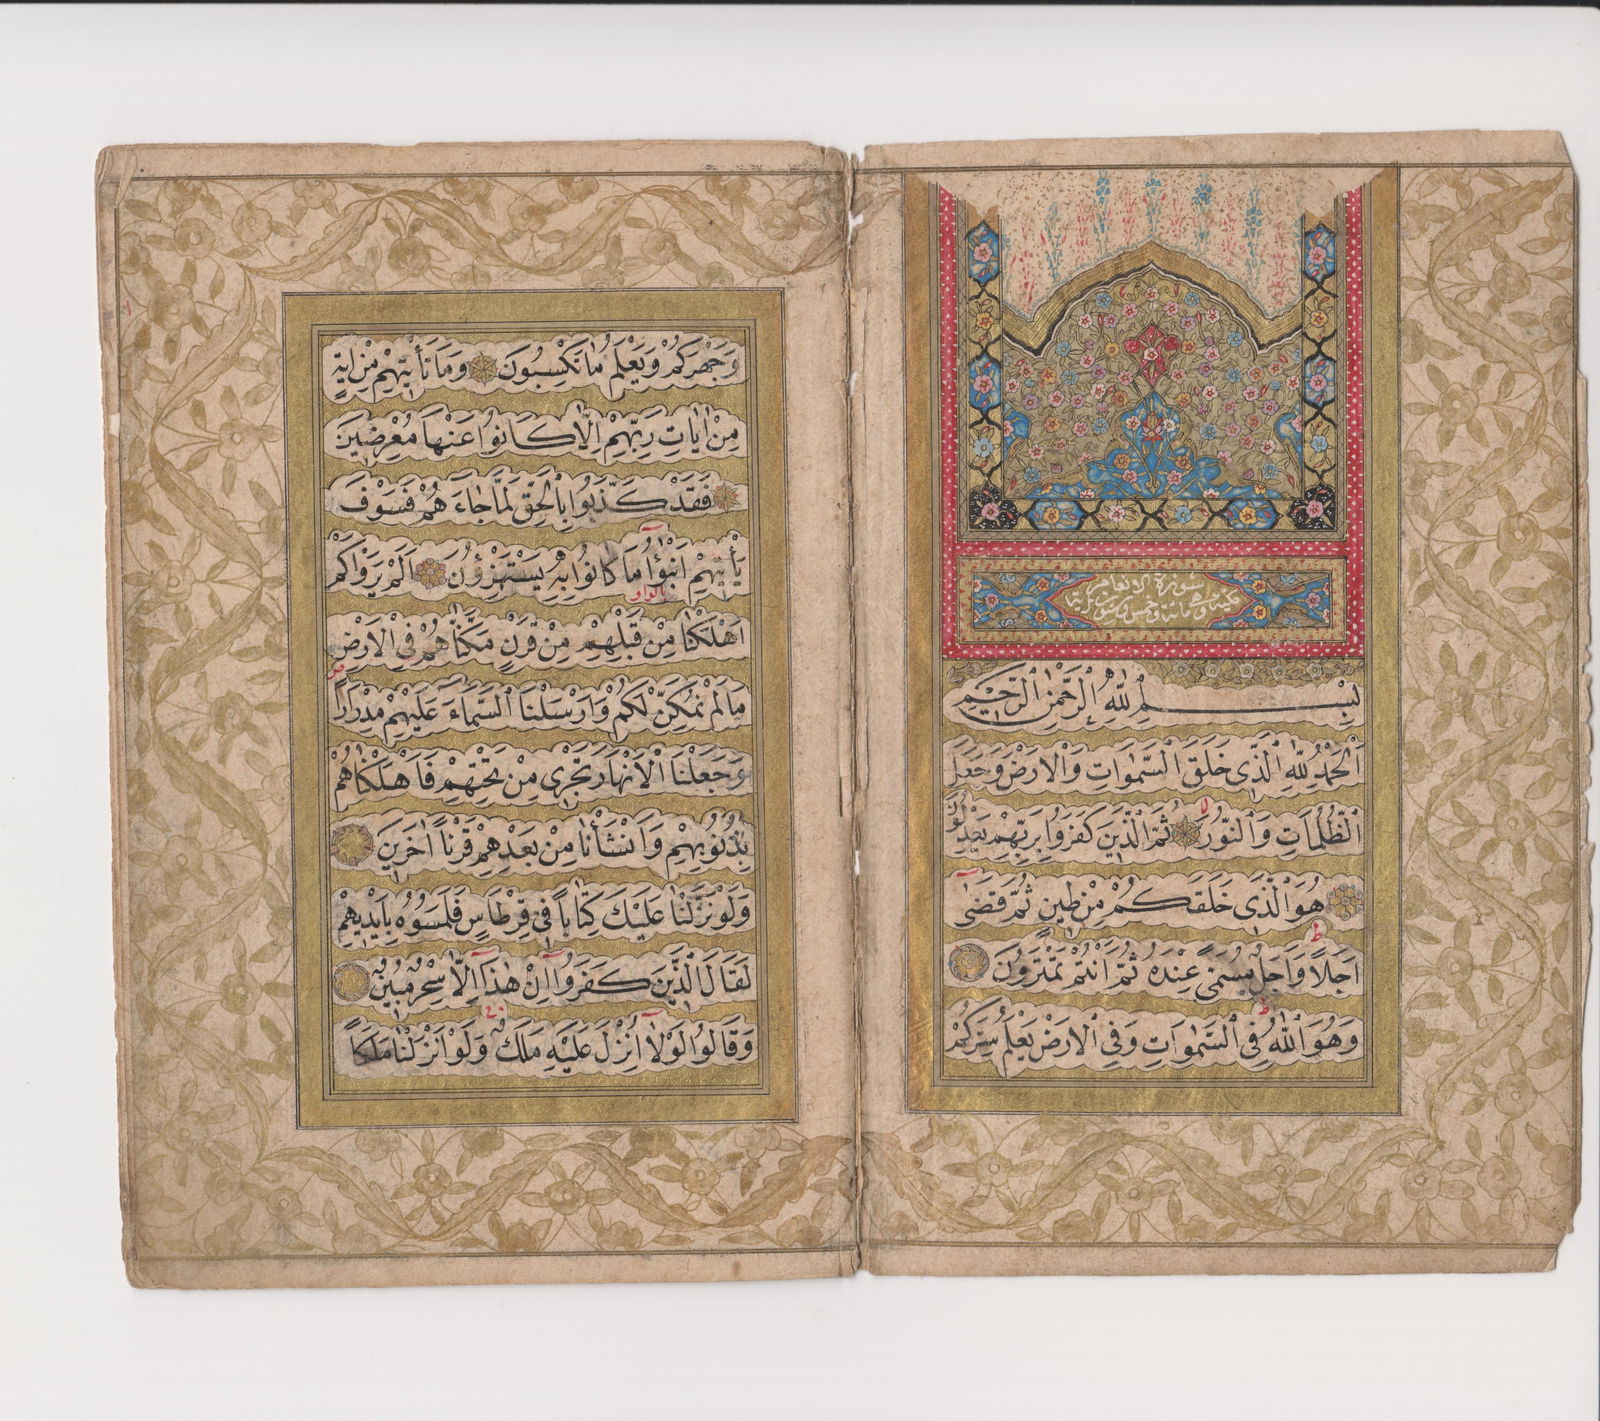 سورة الانعام
مكية وهى مائة وخمس وستون اية
بِسْمِ اللّٰهِ الرَّحْمٰنِ الرَّحِيمِ
اَلْحَمْدُ لِلّٰهِ الَّذِى خَلَقَ السَّمٰوَاتِ وَالْاَرْضَ وَجَعَلَ
الظُّلُمَاتِ وَالنُّورَ ثُمَّ الَّذِينَ كَفَرُوا بِرَبِّهِمْ يَعْدِلُونَ
هُوَ الَّذِى خَلَقَكُمْ مِنْ طِينٍ ثُمَّ قَضٰى
اَجَلًا وَاَجَلٌ مُسَمًّى عِنْدَهُ ثُمَّ اَنْتُمْ تَمْتَرُونَ
وَهُوَ اللّٰهُ فِى السَّمٰوَاتِ وَفِى الْاَرْضِ يَعْلَمُ سِرَّكُمْ
وَجَهْرَكُمْ وَيَعْلَمُ مَا تَكْسِبُونَ وَمَا تَأْتِيهِمْ مِنْ اٰيَةٍ
مِنْ اٰيَاتِ رَبِّهِمْ اِلَّا كَانُوا عَنْهَا مُعْرِضِينَ
فَقَدْ كَذَّبُوا بِالْحَقِّ لَمَّا جَاءَهُمْ فَسَوْفَ
يَأْتِيهِمْ اَنْبٰؤُا مَا كَانُوا بِهِ يَسْتَهْزِؤُنَ اَلَمْ يَرَوْا كَمْ
بالواو
اَهْلَكْنَا مِنْ قَبْلِهِمْ مِنْ قَرْنٍ مَكَّنَّاهُمْ فِى الْاَرْضِ
مَا لَمْ نُمَكِّنْ لَكُمْ وَاَرْسَلْنَا السَّمَاءَ عَلَيْهِمْ مِدْرَارًا
وَجَعَلْنَا الْاَنْهَارَ تَجْرِى مِنْ تَحْتِهِمْ فَاَهْلَكْنَاهُمْ
بِذُنُوبِهِمْ وَاَنْشَأْنَا مِنْ بَعْدِهِمْ قَرْنًا اٰخَرِينَ
وَلَوْ نَزَّلْنَا عَلَيْكَ كِتَابًا فِى قِرْطَاسٍ فَلَمَسُوهُ بِاَيْدِيهِمْ
لَقَالَ الَّذِينَ كَفَرُوا اِنْ هٰذَا اِلَّا سِحْرٌ مُبِينٌ
وَقَالُوا لَوْلَا اُنْزِلَ عَلَيْهِ مَلَكٌ وَلَوْ اَنْزَلْنَا مَلَكًا